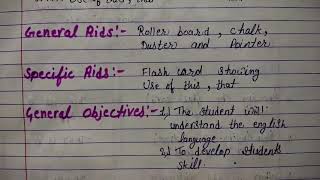 General Aids:- Roller board, chalk,
Duster and Pointer
Specific Aids:- Flash card showing
Use of this, that
General Objectives:- 1.) The student will
understand the english
language
2.) To develop students
skill